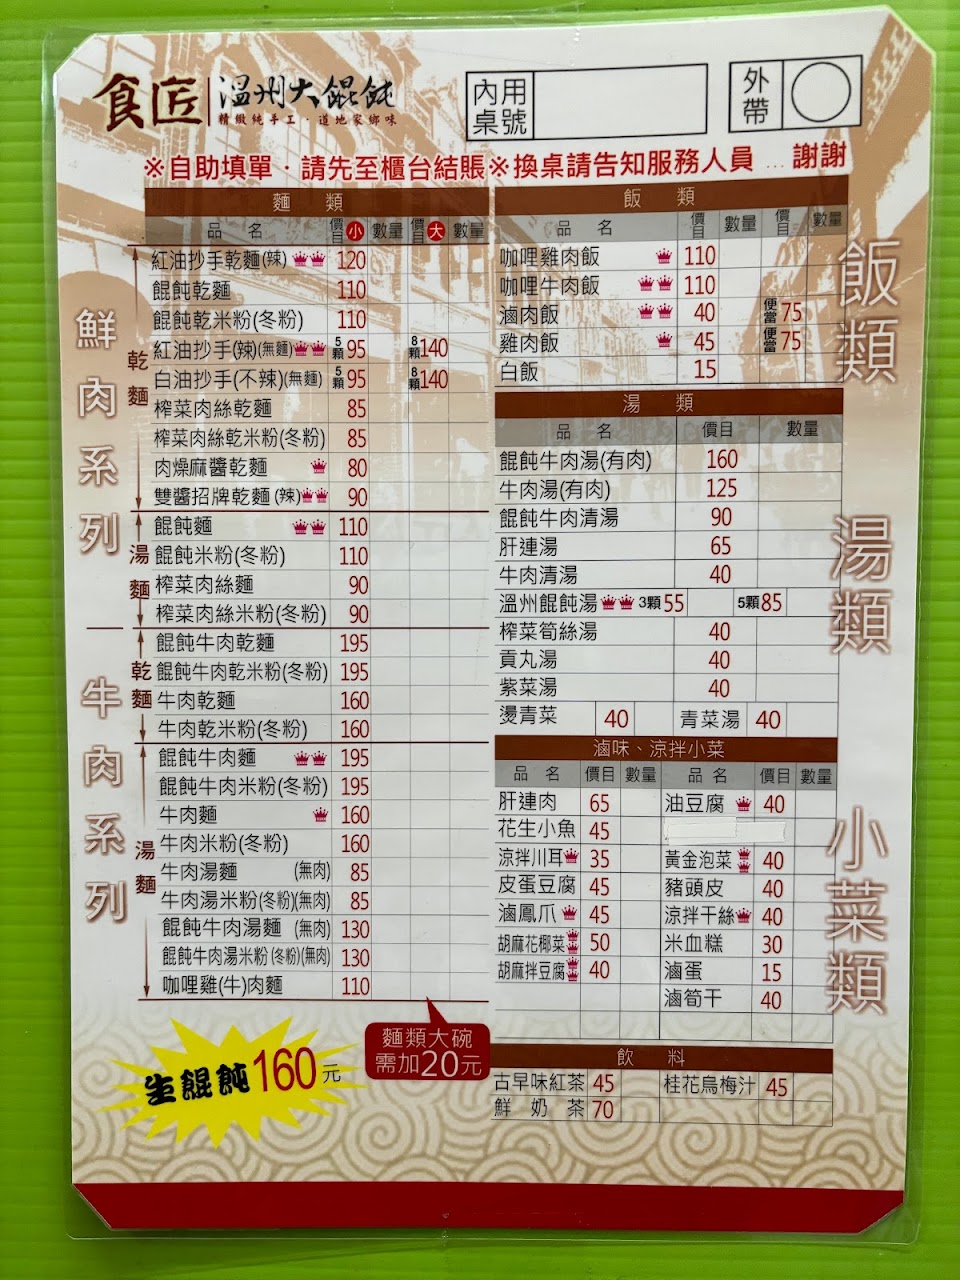 食匠 溫州大餛飩
精緻純手工．道地家鄉味
內用桌號
外帶
※自助填單．請先至櫃台結賬※換桌請告知服務人員…謝謝
麵類
品名 價目 小 數量 價目 大 數量
鮮肉系列
乾麵
紅油抄手乾麵(辣) 120
餛飩乾麵 110
餛飩乾米粉(冬粉) 110
紅油抄手(辣)(無麵) 5顆 95 8顆 140
白油抄手(不辣)(無麵) 5顆 95 8顆 140
榨菜肉絲乾麵 85
榨菜肉絲乾米粉(冬粉) 85
肉燥麻醬乾麵 80
雙醬招牌乾麵(辣) 90
湯麵
餛飩麵 110
餛飩米粉(冬粉) 110
榨菜肉絲麵 90
榨菜肉絲米粉(冬粉) 90
牛肉系列
乾麵
餛飩牛肉乾麵 195
餛飩牛肉乾米粉(冬粉) 195
牛肉乾麵 160
牛肉乾米粉(冬粉) 160
湯麵
餛飩牛肉麵 195
餛飩牛肉米粉(冬粉) 195
牛肉麵 160
牛肉米粉(冬粉) 160
牛肉湯麵 (無肉) 85
牛肉湯米粉(冬粉)(無肉) 85
餛飩牛肉湯麵 (無肉) 130
餛飩牛肉湯米粉(冬粉)(無肉) 130
咖哩雞(牛)肉麵 110
麵類大碗
需加20元
生餛飩160元
飯類
飯類
品名 價目 數量 價目 數量
咖哩雞肉飯 110
咖哩牛肉飯 110
滷肉飯 40 便當 75
雞肉飯 45 便當 75
白飯 15
湯類
湯類
品名 價目 數量
餛飩牛肉湯(有肉) 160
牛肉湯(有肉) 125
餛飩牛肉清湯 90
肝連湯 65
牛肉清湯 40
溫州餛飩湯 3顆 55 5顆 85
榨菜筍絲湯 40
貢丸湯 40
紫菜湯 40
燙青菜 40 青菜湯 40
小菜類
滷味、涼拌小菜
品名 價目 數量 品名 價目 數量
肝連肉 65 油豆腐 40
花生小魚 45
涼拌川耳 35 黃金泡菜 40
皮蛋豆腐 45 豬頭皮 40
滷鳳爪 45 涼拌干絲 40
胡麻花椰菜 50 米血糕 30
胡麻拌豆腐 40 滷蛋 15
滷筍干 40
飲料
古早味紅茶 45 桂花烏梅汁 45
鮮奶茶 70